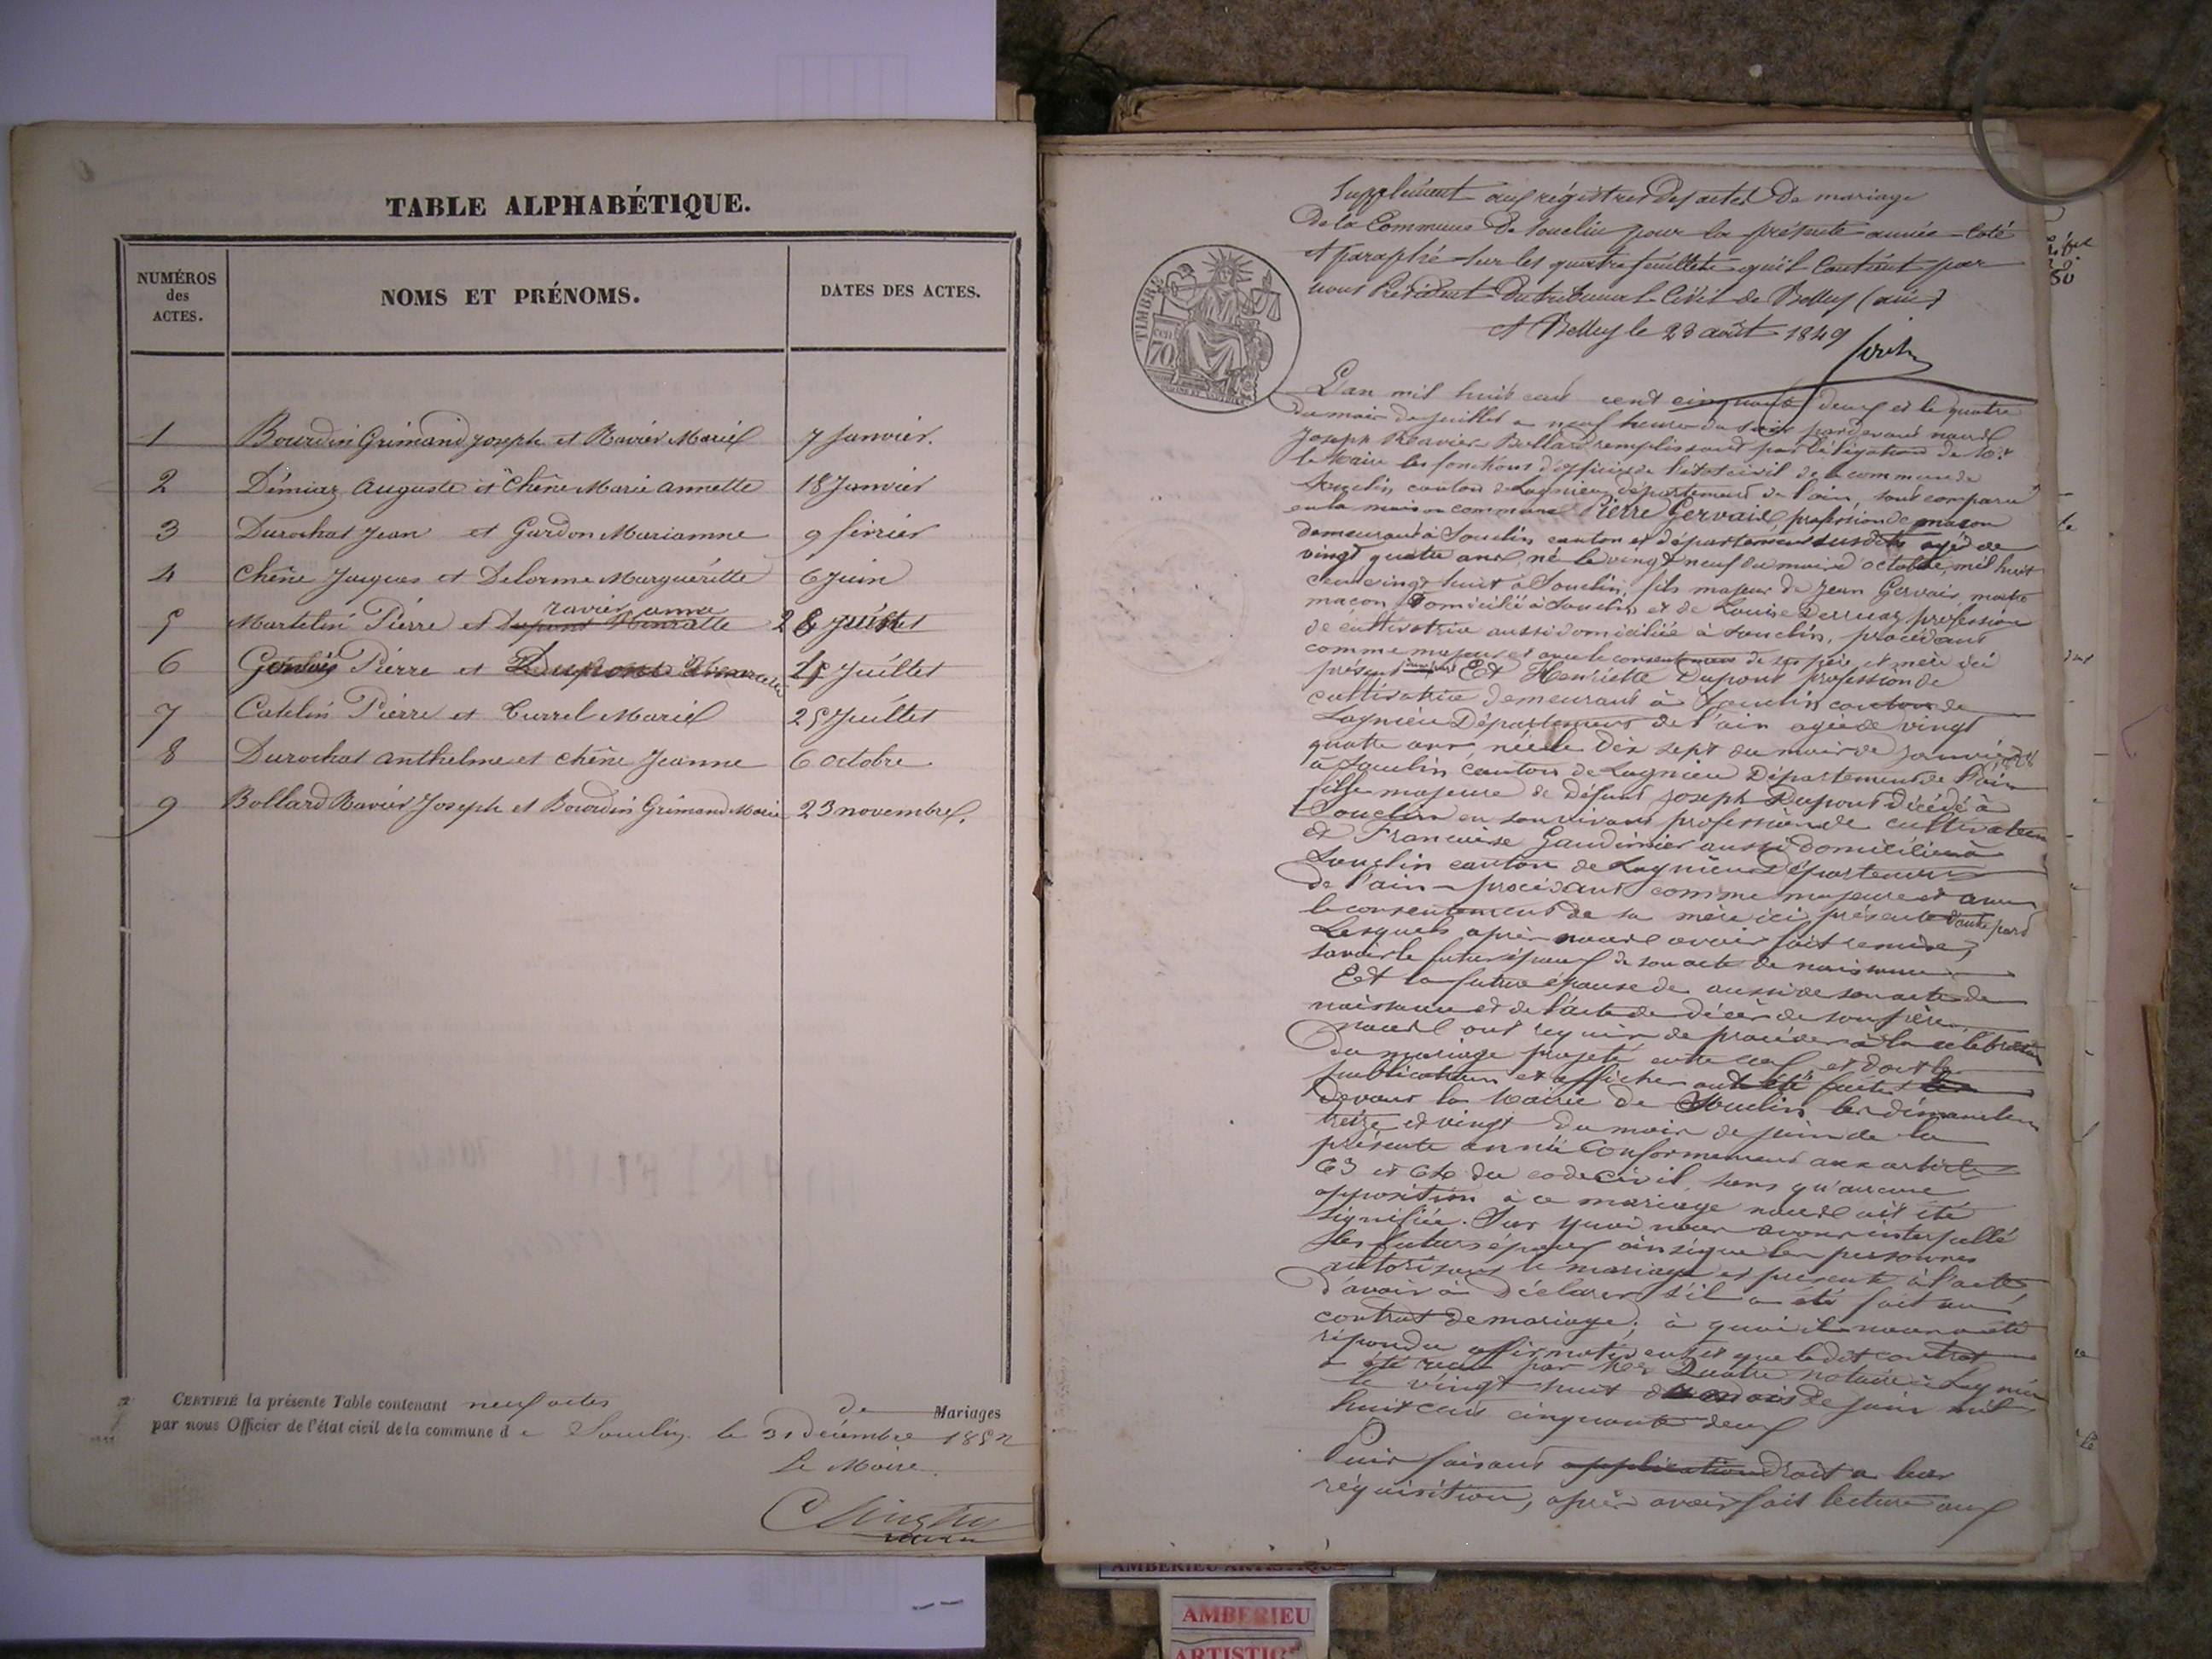 TABLE ALPHABÉTIQUE.
NUMÉROS des ACTES.
NOMS ET PRÉNOMS.
DATES DES ACTES.
1 Bourdin Grimand Joseph et Ravier Marie 7 Janvier.
2 Démiaz Auguste et Chêne Marie Annette 18 Janvier
3 Durochat Jean et Gardon Marianne 9 février
4 Chêne Jacques et Delorme Marguéritte 6 Juin
ravier anna
5 Martelin Pierre et
6 Pierre et Juillet
7 Catelin Pierre et Currel Marie 25 Juillet
8 Durochat Anthelme et Chêne Jeanne 6 octobre
9 Bollard Ravier Joseph et Bourdin Grimand Marie 23 novembre.
CERTIFIÉ la présente Table contenant neuf actes de Mariages
par nous Officier de l'état civil de la commune de Souclin le 31 Décembre 1852
Le Maire
TIMBRE
70
Supplément aux régistres des actes de mariage
De la Commune de Souclin pour la présente année coté
et paraphé sur les quatre feuillets qu'il contient par
nous Président du tribunal Civil de Belley (ain)
A Belley le 23 août 1849
L'an mil huit cent cent cinquante deux et le quatre
du mois de Juillet a neuf heures du soir pardevant nous
Joseph Ravier Bollard remplissant par délégation de Mr
le Maire les fonctions d'officier de l'état civil de la commune de
Souclin canton de Lagnieu département de l'ain, sont comparu
en la maison commune Pierre Gervais, profession de maçon
demeurant à Souclin canton et département susdits agé de
vingt quatre ans, né le vingt neuf du mois d'octobre, mil huit
cent vingt huit à Souclin, fils majeur de Jean Gervais, maitre
maçon domicilié à Souclin et de Louise profession
de cultivatrice aussi domiciliée à Souclin, procédant
comme majeur et avec le consentement de ses père et mère ici
présent Et Henriette Dupont profession de
cultivatrice demeurant à Souclin canton de
Lagnieu Département de l'ain agée de vingt
quatre ans, née le dix sept du mois de Janvier
à Souclin canton de Lagnieu Département de l'ain
fille majeure de défunt Joseph Dupont décédé à
Souclin en son vivant profession de cultivateur
et Francoise Gaudinier aussi domiciliée à
Souclin canton de Lagnieu Département
de l'ain procédant comme majeure et avec
le consentement de sa mère ici présente d'autre part
Lesquels après nous avoir fait remise,
savoir le futur époux de son acte de naissance
Et la future épouse de aussi de son acte de
naissance et de l'acte de décès de son père,
nous ont requis de procéder à la célébration
du mariage projeté entre eux, et dont les
publications et affiches ont été faites
devant la Mairie de Souclin les dimanches
treize et vingt du mois de juin de la
présente année conformement aux articles
63 et 64 du code civil, sans qu'aucune
opposition à ce mariage nous ait été
signifiée. Sur quoi nous avons interpellé
les futurs époux ainsi que les personnes
autorisant le mariage et présente à l'acte,
d'avoir à déclarer s'il a été fait un
contrat de mariage; à quoi il nous a été
répondu affirmativement et que le dit contrat
a été recu par Me notaire à Lagnieu
le vingt huit du mois de juin mil
huit cent cinquante deux
Puis faisant droit a leur
réquisition, après avoir fait lecture aux
AMBERIEU ARTISTIQUE
AMBERIEU
ARTISTIQ